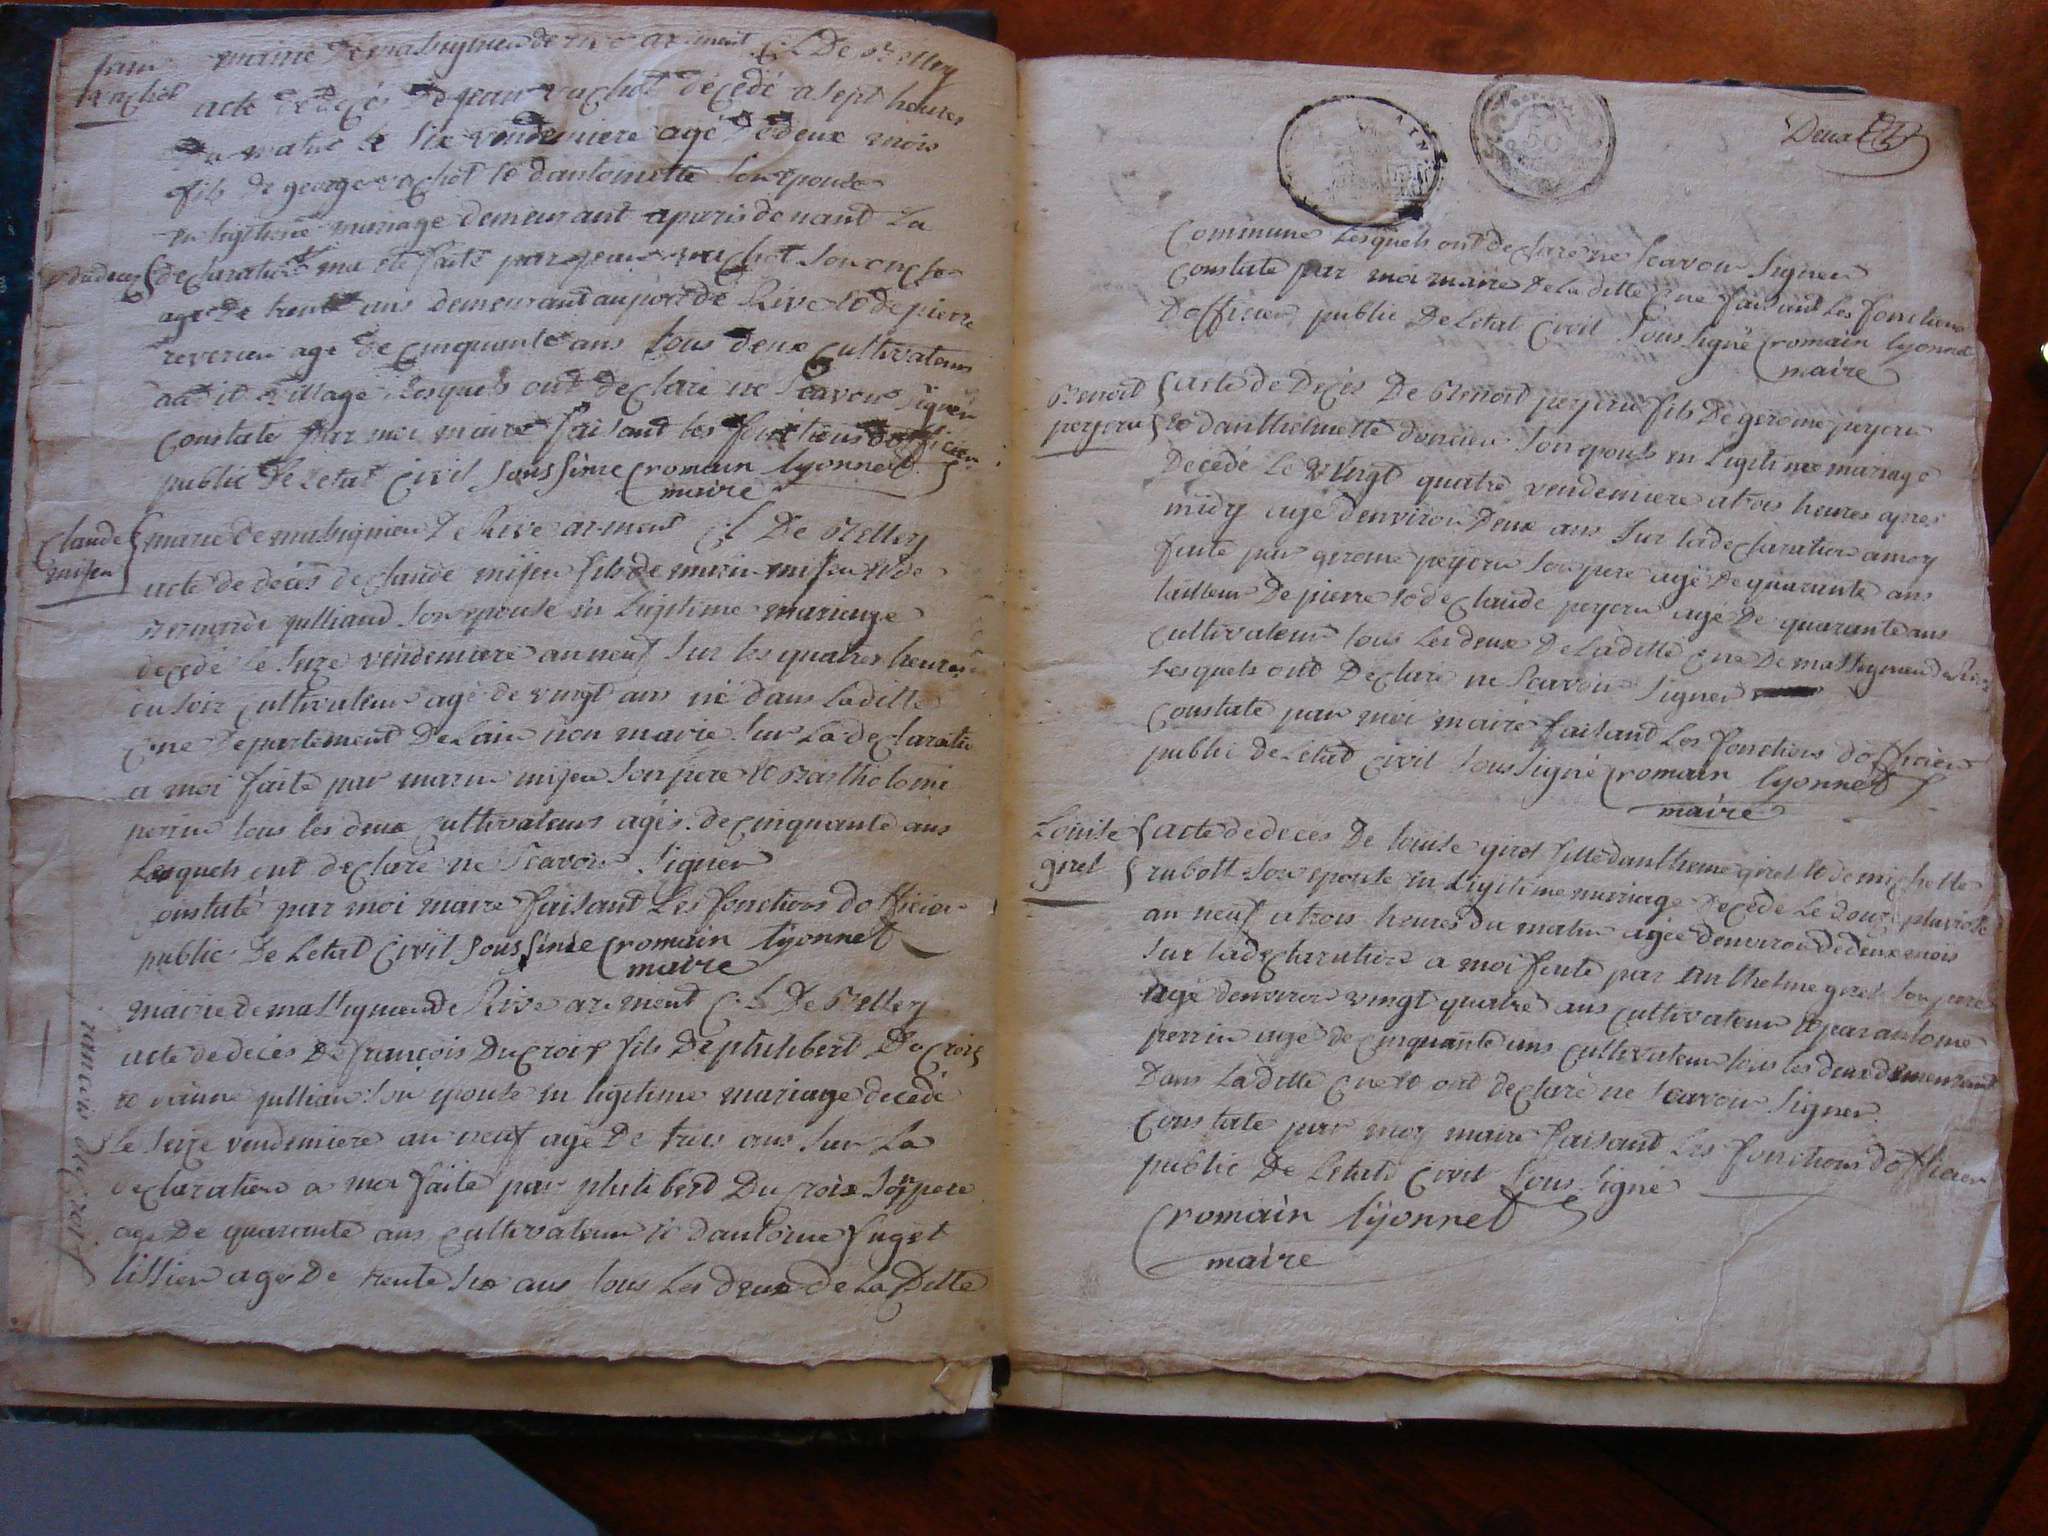 jean mairie de massignieu de rive ar-ment C.L De Belley
vachot acte de décés de jean vachot décédé a sept heures
du matin le six vendemiere agé de deux mois
fils de george vachot et dantoinette son epouse
en legitime mariage demeurant a paris devant La
declaration ma eté faite par jean vachot son oncle
agé De trente ans demeurant au port de Rive et de pierre
reverieu agé de cinquante ans tous deux cultivateurs
audit village Lesquels ont declaré ne Scavoir Signer
Constaté par moi maire faisant les fonctions dofficier
public De Letat Civil Soussiné romain lyonnet
maire
Claude mairie de massignieu De Rive ar-ment C.L De Belley
mijeu acte de décés de claude mijeu fils de marin mijeu et de
julliand Son epouse en Legitime mariage
decedé Le Seize vendemiere an neuf Sur les quatres heures
du Soir Cultivateur agé de vingt ans né dans Laditte
Cne Departement De Lain non marié Sur La declaration
a moi faite par marin mijeu Son pere et Bartholomé
perrin tous les deux cultivateurs agés de cinquante ans
Lesquels ont declaré ne Scavoir Signer
Constaté par moi maire faisant Les fonctions dofficier
public De Letat Civil Soussiné romain lyonnet
maire
mairie de massignieu de Rive ar-ment C.L De Belley
francois du croix
acte de décés De françois Du Croix fils De philibert Du Croix
et julliand Son epouse en legitime mariage decedé
le Seize vendemiere an neuf agé De trois ans Sur La
declaration a moi faite par philibert Du Croix Son pere
agé De quarante ans cultivateur et dantoine fuget
tissier agé De trente Six ans tous Les deux de La Ditte
Deux
Commune Lesquels ont declaré ne Scavoir Signer
Constaté par moi maire De La ditte Cne faisant Les fonctions
Dofficier public De Letat Civil Soussigné romain lyonnet
maire
Benoit acte de Décés De Benoit peyeru fils De gerome peyeru
peyeru et danthelmette doncieu Son epouse en Legitime mariage
Décedé Le vingt quatre vendemiere a trois heures apres
midy agé denviron Deux ans Sur la declaration a moy
faite par gerome peyeru Son pere agé De quarante ans
tailleur De pierre et de Claude peyeru agé De quarante ans
Cultivateur tous Les deux De Laditte Cne De massignieu de Rive
Lesquels ont Declaré ne Scavoir Signer
Constaté par moi maire faisant Les fonctions dofficier
public de Létat Civil Soussigné romain lyonnet
maire
Louise acte de deces De louise giret fille danthelme giret et de michelle
giret rubott Son epouse en Legitime mariage Decedé Le douze pluviose
an neuf a trois heures du matin agée denviron de deux mois
Sur la declaration a moi faite par anthelme giret Son pere
agé denviron vingt quatre ans cultivateur et par antoine
perrin agé de cinquante ans cultivateur tous les deux demeurant
Dans La ditte Cne et ont declaré ne Scavoir Signer
Constaté par moy maire faisant Les fonctions dofficier
public De Letat Civil Sous Signé
romain lyonnet
maire